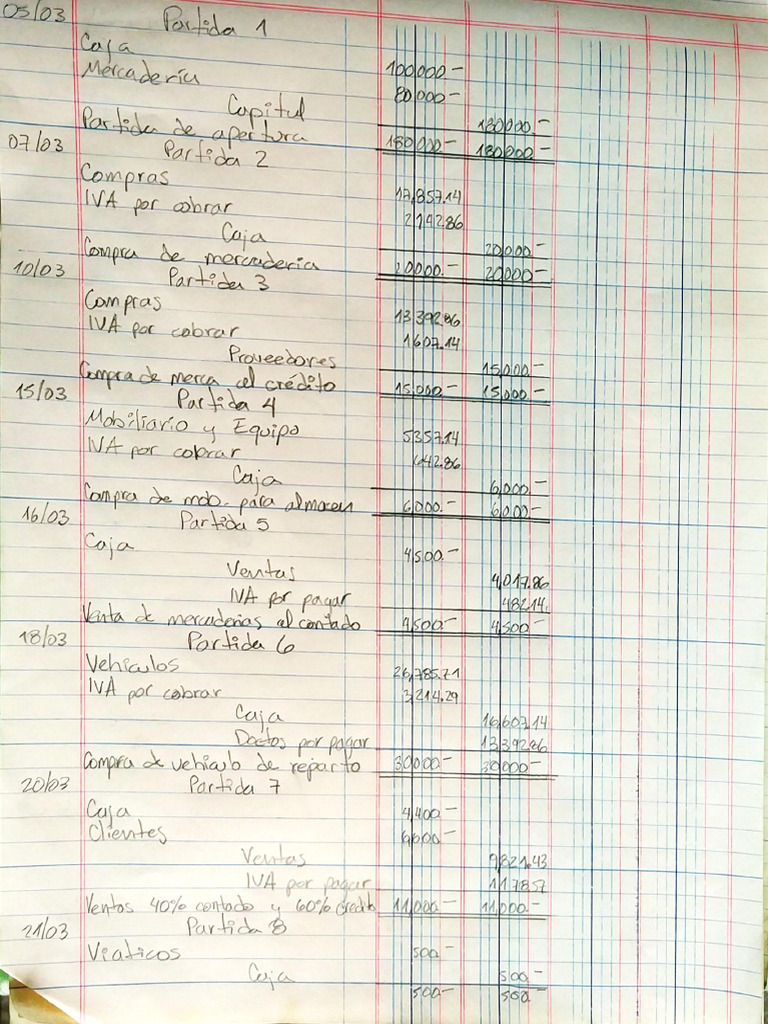 05/03 Partida 1
Caja 100,000.-
Mercadería 80,000.-
Capital 180,000.-
Partida de apertura 180,000.- 180,000.-
07/03 Partida 2
Compras 17,857.14
IVA por cobrar 2,142.86
Caja 20,000.-
Compra de mercaderia 20,000.- 20,000.-
10/03 Partida 3
Compras 13,392.86
IVA por cobrar 1,607.14
Proveedores 15,000.-
Compra de merca al crédito 15,000.- 15,000.-
15/03 Partida 4
Mobiliario y Equipo 5,357.14
IVA por cobrar 642.86
Caja 6,000.-
Compra de mob. para almacen 6,000.- 6,000.-
16/03 Partida 5
Caja 4,500.-
Ventas 4,017.86
IVA por pagar 482.14
Venta de mercaderias al contado 4,500.- 4,500.-
18/03 Partida 6
Vehiculos 26,785.71
IVA por cobrar 3,214.29
Caja 16,607.14
Doctos por pagar 13,392.86
Compra de vehiculo de reparto 30,000.- 30,000.-
20/03 Partida 7
Caja 4,400.-
Clientes 6,600.-
Ventas 9,821.43
IVA por pagar 1,178.57
Ventas 40% contado y 60% crédito 11,000.- 11,000.-
21/03 Partida 8
Viaticos 500.-
Caja 500.-
500.- 500.-